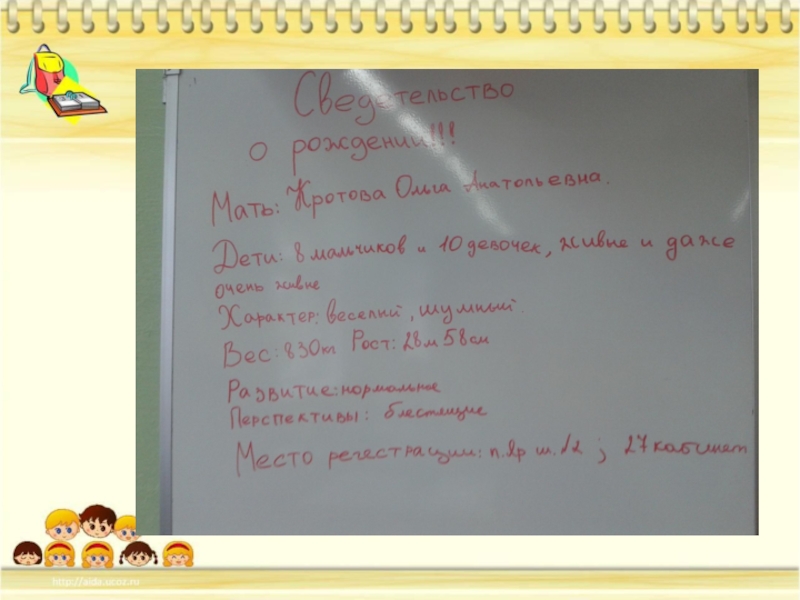 Сведетельство
о рождении!!!
Мать: Кротова Ольга Анатольевна.
Дети: 8 мальчиков и 10 девочек, живые и даже
очень живые
Характер: веселый, шумный.
Вес: 830кг Рост: 28м 58см
Развитие: нормальное
Перспективы: блестящие
Место регестрации: п. Яр ш. №2 ; 27 кабинет
http://aida.ucoz.ru